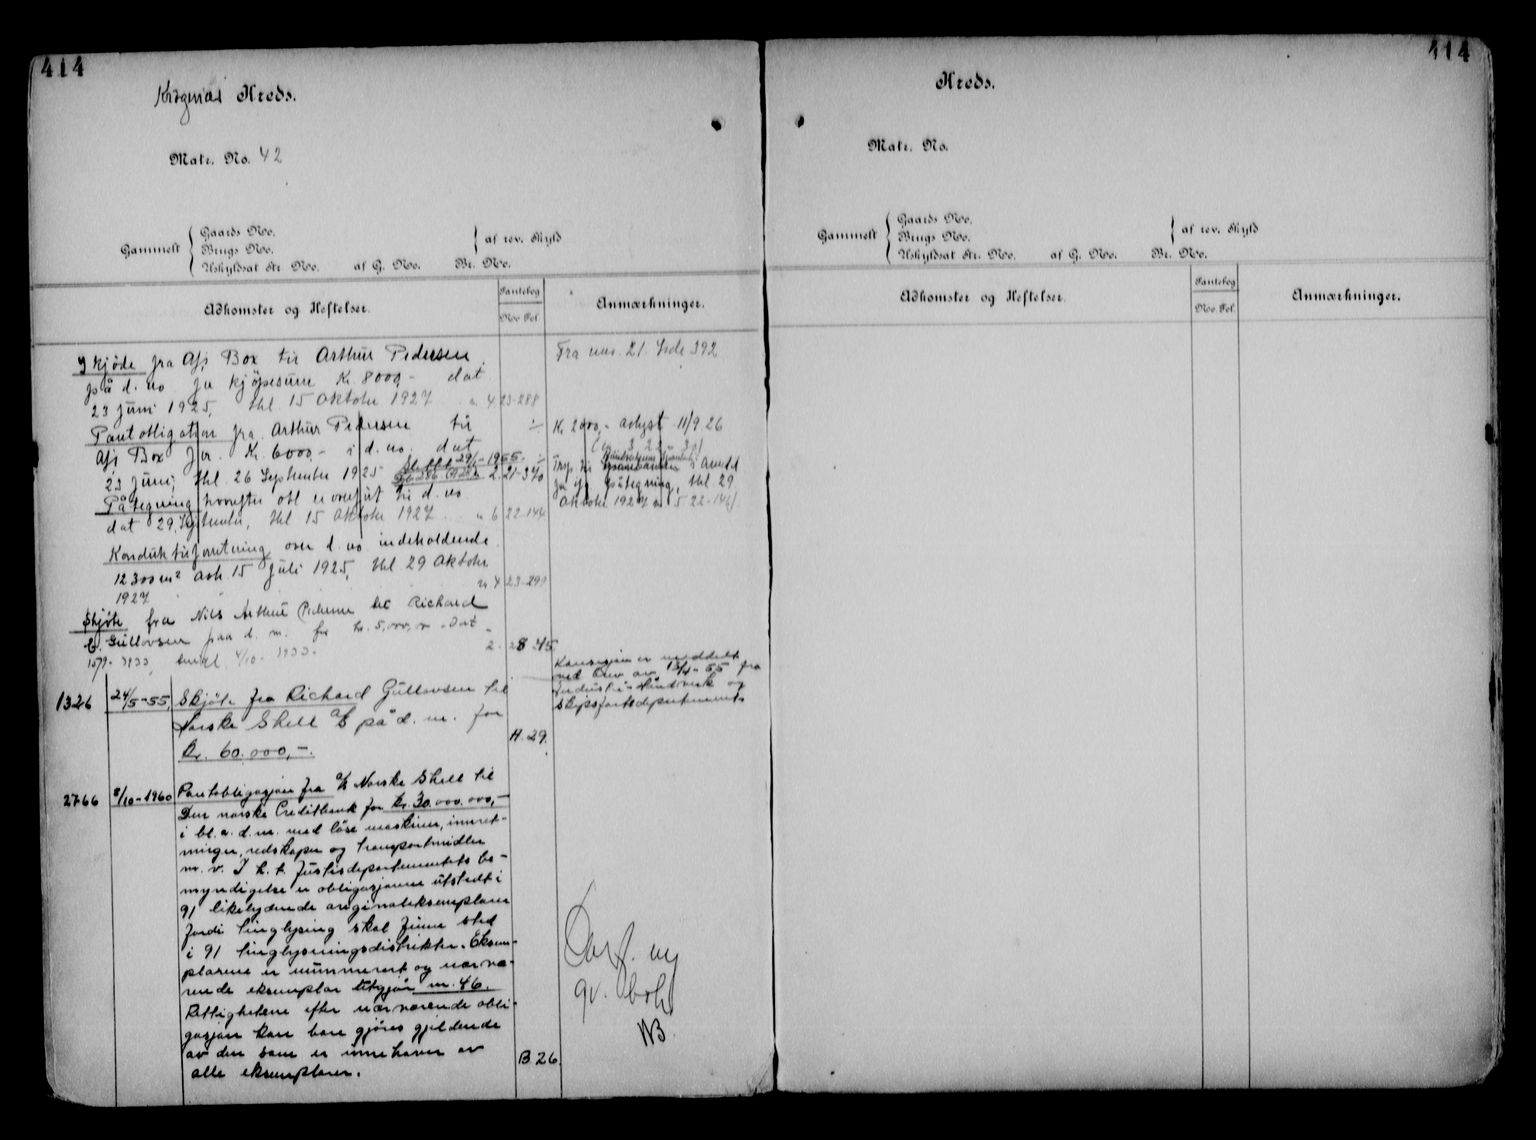 414
Kragenäs Kreds.
Matr. No. 42
Gammelt { Gaards No.
Brugs No.
Uskyldsat Nr. No. af G. No. Br. No.
} af rev. Skyld
Adkomster og Heftelser.
Pantebog
No. Fol.
Anmærkninger.
Skjøde fra Asj Box til Arthur Pedersen
på d. no for kjøpesum Kr. 8000,- dat
23 juni 1925, thl. 15 Oktober 1927 n. 4 23-288
Fra no. 21. Side 392
Pantobligation fra Arthur Pedersen til
Asj Box for Kr. 6000,- i d. no. dat
23 juni, thl. 26 September 1925 2 21-340
29/1-1955
Kr 2000,- avlyst 11/9.26
Påtegning hvorefter obl er overført til d. no
dat 29. September, thl 15 Oktober 1927 n 6 22-144
påtegning, thl. 29
Oktober 1927 n 5 22-146)
Konduktørforretning over d. no indeholdende
12300 m² avh. 15 Juli 1925, thl. 29 Oktober
1927 n 4 23-299
Skjøte fra Nils Arthur Pedersen til Richard
Gullovsen paa d. m. for kr. 5,000,00 Dat
15/9. 1933, 4/10. 1933. 2. 28 45
Konsesjon er meddelt
ved brev av 13/4-55 fra
Industri- Håndverk og
Skipsfartsdepartementet
1326 24/5-55 Skjøte fra Richard Gullovsen til
Norske Shell A/S på d. m. for
Kr. 60.000,-.
H. 29.
2766 8/10-1960 Pantobligasjon fra A/S Norske Shell til
Den norske Creditbank for kr. 30.000.000,-
i bl. a. d. m. med løse maskiner, innret-
ninger, redskaper og transportmidler
m. v. I h. t. Justisdepartementets be-
myndigelse er obligasjonen utstedt i
91 likelydende originaleksemplarer
fordi tinglysing skal finne sted
i 91 tinglysningsdistrikter. Eksem-
plarene er nummerert og nærvæ-
rende eksemplar utgjør nr. 46.
Rettighetene efter nærværende obli-
gasjon kan bare gjøres gjeldende
av den som er innehaver av
alle eksemplarer.
B 26
Overf. ny
gr. bok
NB.
414
Kreds.
Matr. No.
Gammelt { Gaards No.
Brugs No.
Uskyldsat Nr. No. af G. No. Br. No.
} af rev. Skyld
Adkomster og Heftelser.
Pantebog
No. Fol.
Anmærkninger.